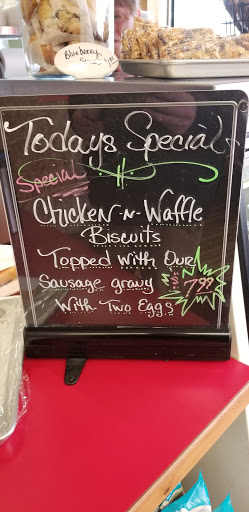 Blueberry
Todays Special
Special
Chicken-N-Waffle
Biscuits
Topped With Our
Sausage gravy
With Two Eggs
$7.99